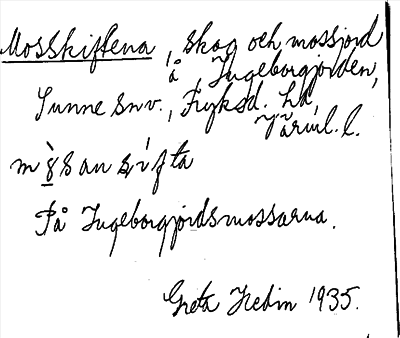 Mosskiftena, skog och mossjord
å Ingeborgjorden,
Sunne snv., Fryksd. hd,
Värml. l.
På Ingeborgjordsmossarna.
Greta Hedin 1935.